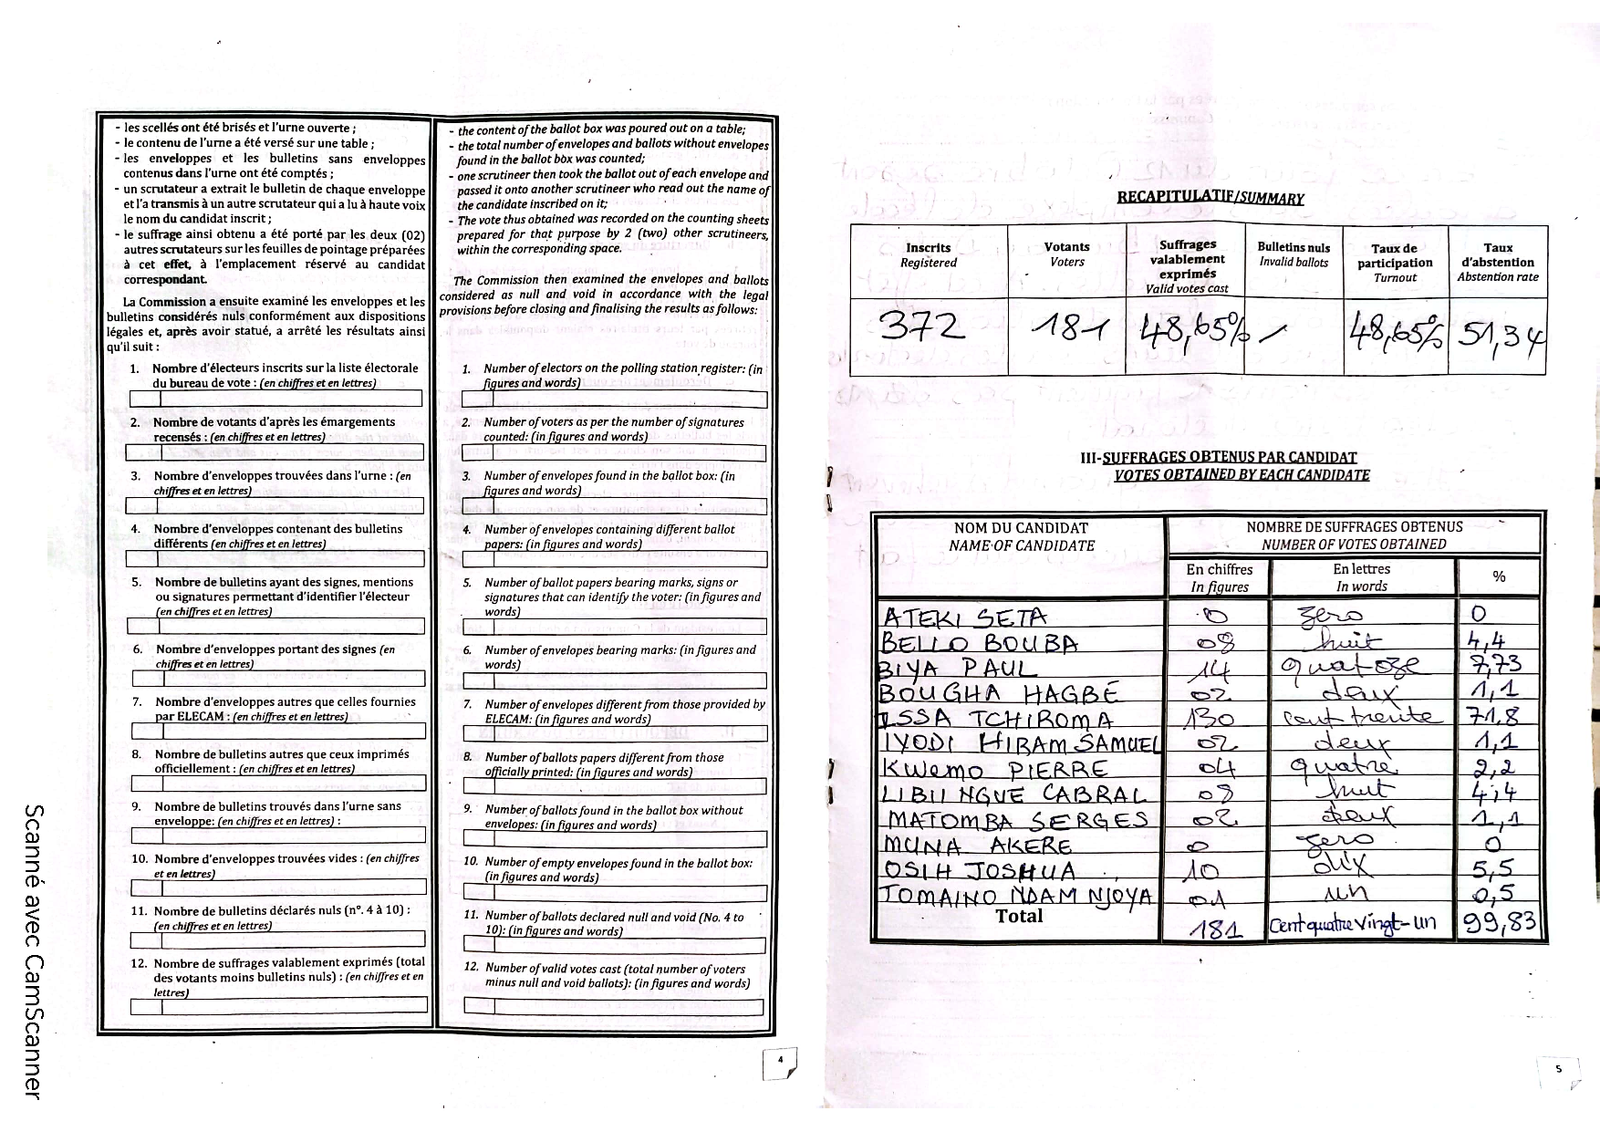 - les scellés ont été brisés et l'urne ouverte ;
- le contenu de l'urne a été versé sur une table ;
- les enveloppes et les bulletins sans enveloppes
contenus dans l'urne ont été comptés ;
- un scrutateur a extrait le bulletin de chaque enveloppe
et l'a transmis à un autre scrutateur qui a lu à haute voix
le nom du candidat inscrit ;
- le suffrage ainsi obtenu a été porté par les deux (02)
autres scrutateurs sur les feuilles de pointage préparées
à cet effet, à l'emplacement réservé au candidat
correspondant.
La Commission a ensuite examiné les enveloppes et les
bulletins considérés nuls conformément aux dispositions
légales et, après avoir statué, a arrêté les résultats ainsi
qu'il suit :
1. Nombre d'électeurs inscrits sur la liste électorale
du bureau de vote : (en chiffres et en lettres)
2. Nombre de votants d'après les émargements
recensés : (en chiffres et en lettres)
3. Nombre d'enveloppes trouvées dans l'urne : (en
chiffres et en lettres)
4. Nombre d'enveloppes contenant des bulletins
différents (en chiffres et en lettres)
5. Nombre de bulletins ayant des signes, mentions
ou signatures permettant d'identifier l'électeur
(en chiffres et en lettres)
6. Nombre d'enveloppes portant des signes (en
chiffres et en lettres)
7. Nombre d'enveloppes autres que celles fournies
par ELECAM : (en chiffres et en lettres)
8. Nombre de bulletins autres que ceux imprimés
officiellement : (en chiffres et en lettres)
9. Nombre de bulletins trouvés dans l'urne sans
enveloppe: (en chiffres et en lettres) :
10. Nombre d'enveloppes trouvées vides : (en chiffres
et en lettres)
11. Nombre de bulletins déclarés nuls (n°. 4 à 10) :
(en chiffres et en lettres)
12. Nombre de suffrages valablement exprimés (total
des votants moins bulletins nuls) : (en chiffres et en
lettres)
- the content of the ballot box was poured out on a table;
- the total number of envelopes and ballots without envelopes
found in the ballot box was counted;
- one scrutineer then took the ballot out of each envelope and
passed it onto another scrutineer who read out the name of
the candidate inscribed on it;
- The vote thus obtained was recorded on the counting sheets
prepared for that purpose by 2 (two) other scrutineers,
within the corresponding space.
The Commission then examined the envelopes and ballots
considered as null and void in accordance with the legal
provisions before closing and finalising the results as follows:
1. Number of electors on the polling station register: (in
figures and words)
2. Number of voters as per the number of signatures
counted: (in figures and words)
3. Number of envelopes found in the ballot box: (in
figures and words)
4. Number of envelopes containing different ballot
papers: (in figures and words)
5. Number of ballot papers bearing marks, signs or
signatures that can identify the voter: (in figures and
words)
6. Number of envelopes bearing marks: (in figures and
words)
7. Number of envelopes different from those provided by
ELECAM: (in figures and words)
8. Number of ballots papers different from those
officially printed: (in figures and words)
9. Number of ballots found in the ballot box without
envelopes: (in figures and words)
10. Number of empty envelopes found in the ballot box:
(in figures and words)
11. Number of ballots declared null and void (No. 4 to
10): (in figures and words)
12. Number of valid votes cast (total number of voters
minus null and void ballots): (in figures and words)
4
Scanné avec CamScanner
RECAPITULATIF/SUMMARY
Inscrits Votants Suffrages Bulletins nuls Taux de Taux
Registered Voters valablement Invalid ballots participation d'abstention
exprimés Turnout Abstention rate
Valid votes cast
372 181 48,65% / 48,65% 51,34
III-SUFFRAGES OBTENUS PAR CANDIDAT
VOTES OBTAINED BY EACH CANDIDATE
NOM DU CANDIDAT NOMBRE DE SUFFRAGES OBTENUS
NAME OF CANDIDATE NUMBER OF VOTES OBTAINED
En chiffres En lettres %
In figures In words
ATEKI SETA 0 zero 0
BELLO BOUBA 08 huit 4,4
BIYA PAUL 14 quatoze 7,73
BOUGHA HAGBÉ 02 deux 1,1
ISSA TCHIROMA 130 cent trente 71,8
IYODI HIRAM SAMUEL 02 deux 1,1
KWEMO PIERRE 04 quatre 2,2
LIBII NGUE CABRAL 08 huit 4,4
MATOMBA SERGES 02 deux 1,1
MUNA AKERE 0 zero 0
OSIH JOSHUA 10 dix 5,5
TOMAINO NDAM NJOYA 01 un 0,5
Total 181 Cent quatre Vingt-un 99,83
5